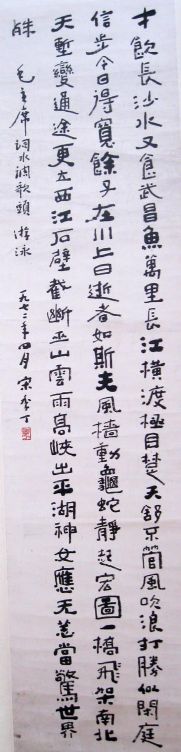 才飲長沙水又食武昌魚萬里長江橫渡極目楚天舒不管風吹浪打勝似閑庭
信步今日得寬餘子在川上曰逝者如斯夫風檣動龜蛇靜起宏圖一橋飛架南北
天塹變通途更立西江石壁截斷巫山雲雨高峽出平湖神女應无恙當驚世界
殊 毛主席詞水調歌頭 游泳 一九七二年四月 宋季丁